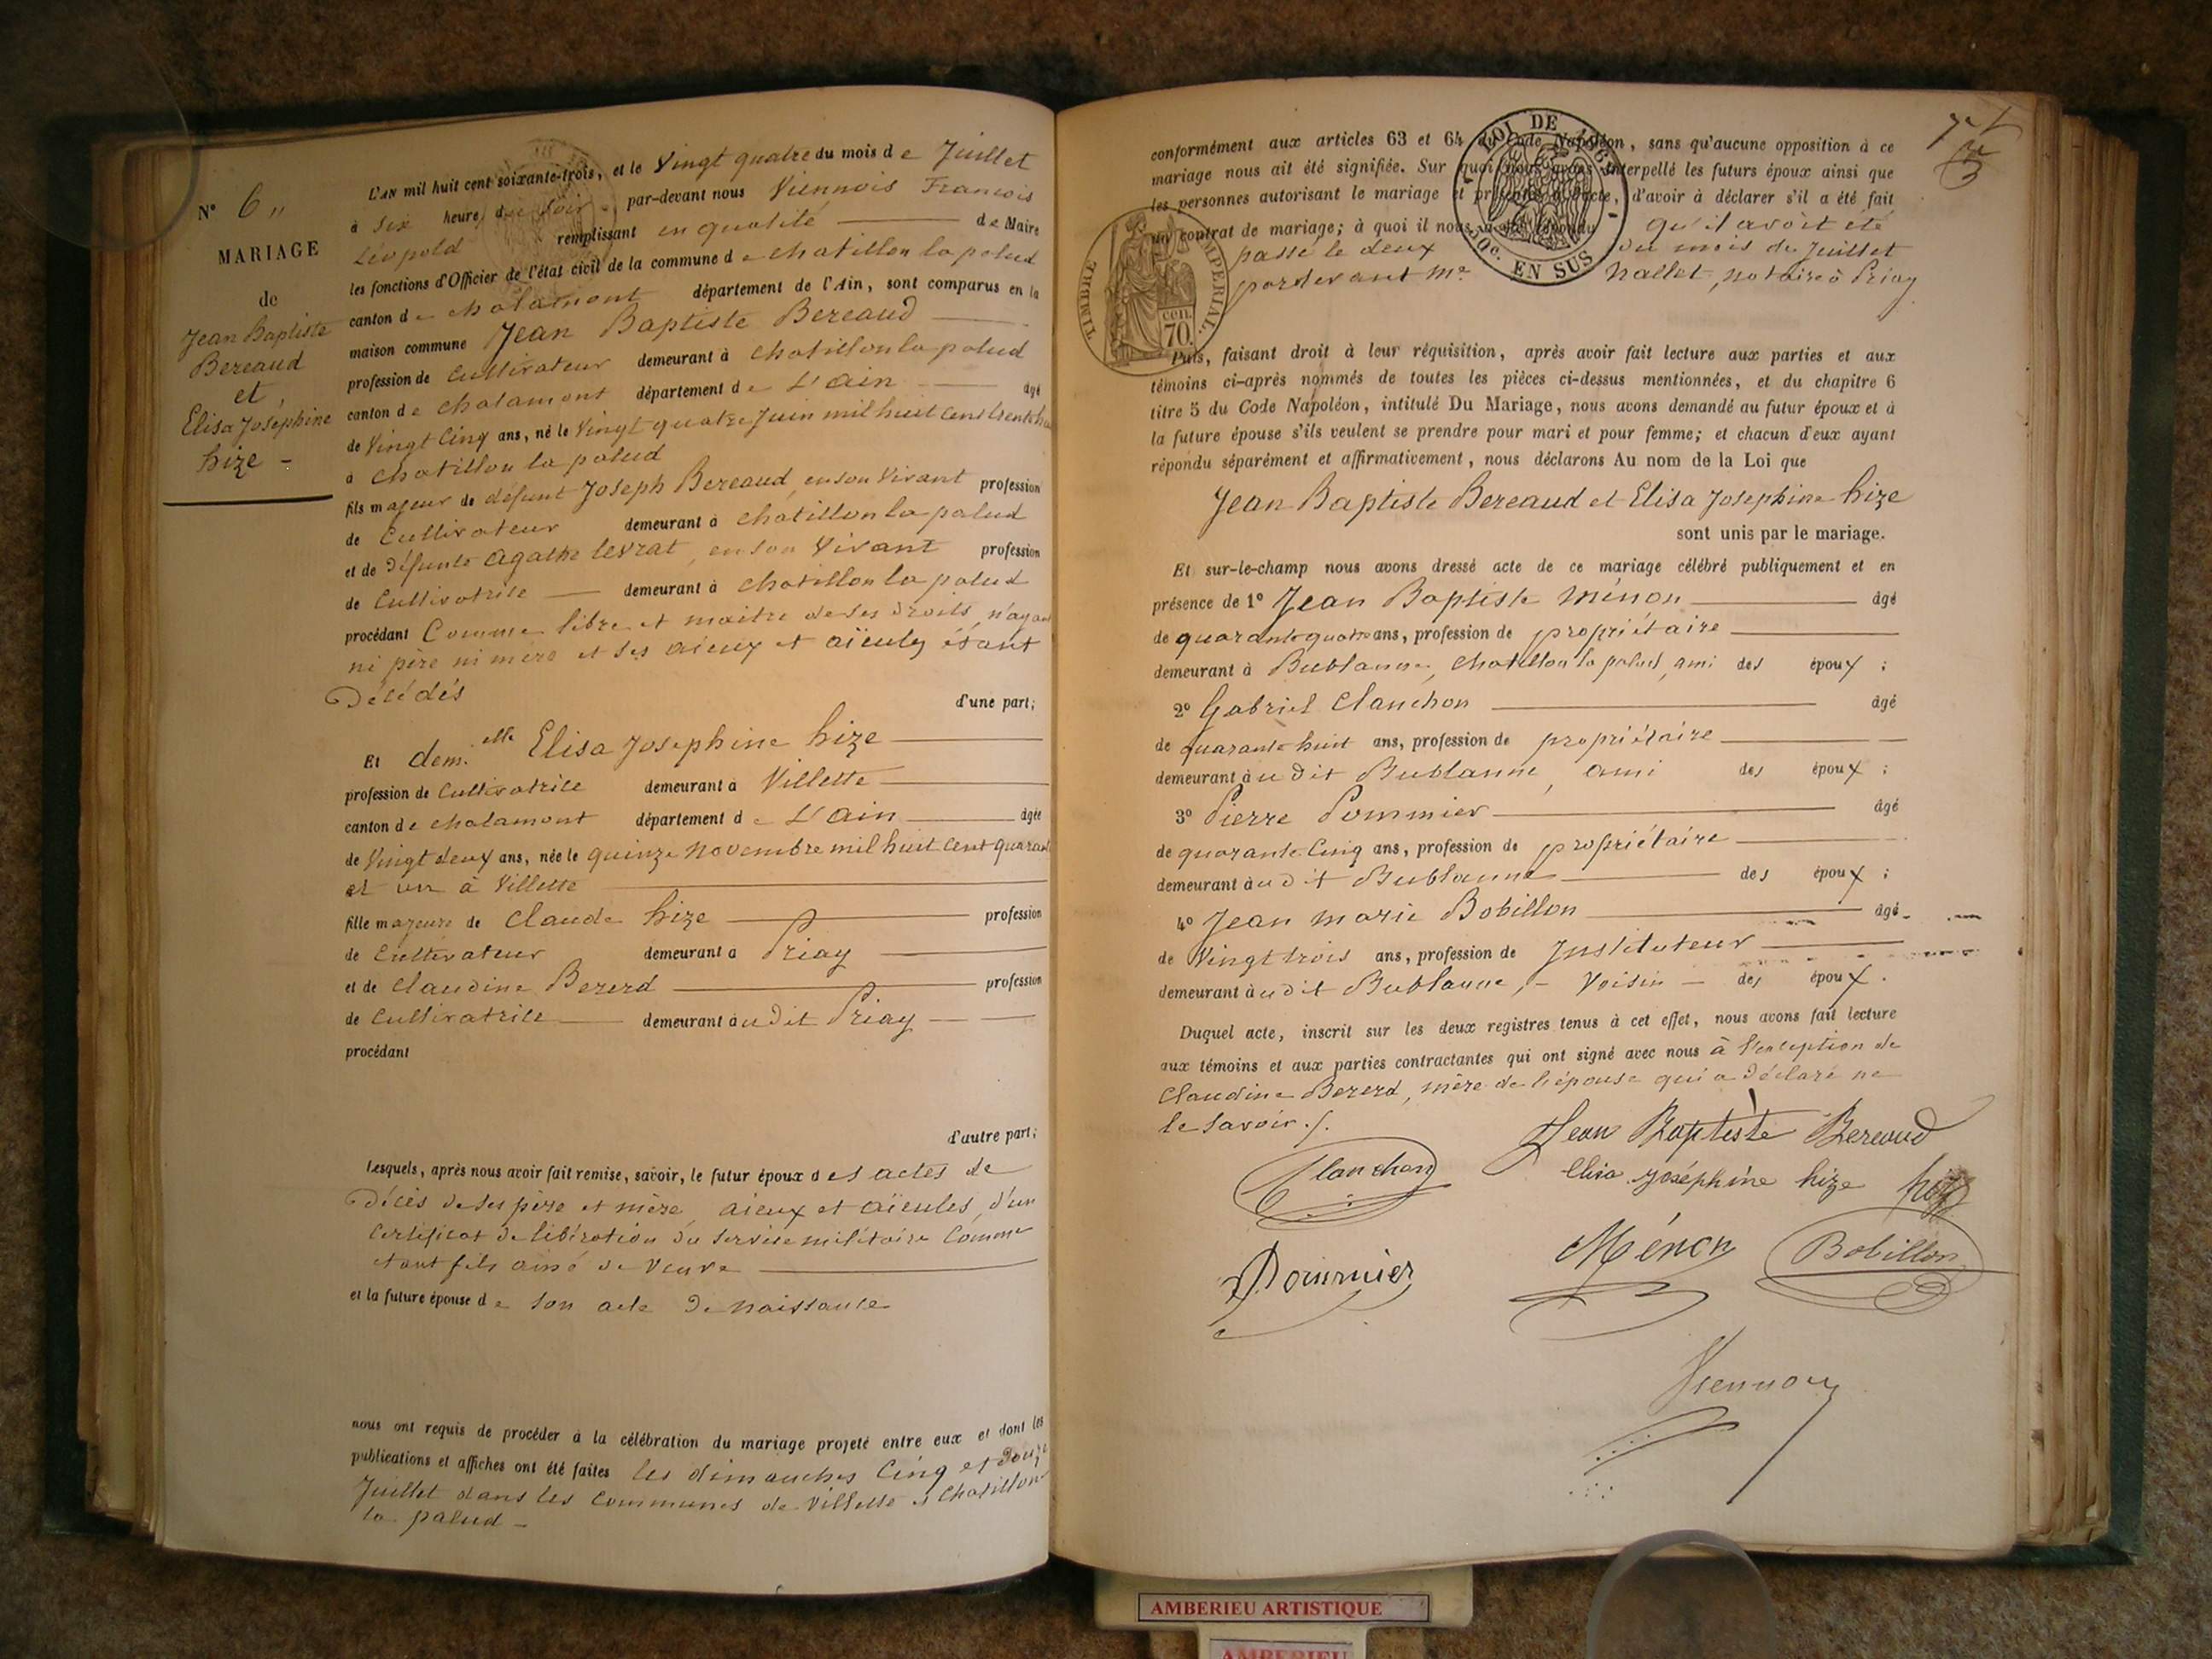 N° 6 "
MARIAGE
de
Jean Baptiste
Bereaud
et
Elisa Josephine
hize -
L'AN mil huit cent soixante-trois, et le Vingt quatre du mois de Juillet
à six heures du soir par-devant nous Viennois François
Léopold remplissant en qualité de Maire
les fonctions d'Officier de l'état civil de la commune de chatillon la palud
canton de chalamont département de l'Ain, sont comparus en la
maison commune Jean Baptiste Bereaud
profession de Cultivateur demeurant à chatillon la palud
canton de chalamont département de L'ain âgé
de Vingt Cinq ans, né le Vingt quatre Juin mil huit cent trente
à chatillon la palud
fils majeur de défunt Joseph Bereaud, en son Vivant profession
de Cultivateur demeurant à chatillon la palud
et de défunte Agathe levrat, en son Vivant profession
de Cultivatrice demeurant à chatillon la palud
procédant Comme libre et maitre de ses droits, n'ayant
ni père ni mère et ses aieux et aïeules étant
Décédés
d'une part;
Et dem.elle Elisa Josephine hize
profession de Cultivatrice demeurant à Villette
canton de chalamont département de L'ain âgée
de Vingt deux ans, née le quinze novembre mil huit cent quarant
et un à Villette
fille majeure de Claude hize profession
de Cultivateur demeurant à Priay
et de Claudine Bererd profession
de Cultivatrice demeurant àudit Priay
procédant
d'autre part;
Lesquels, après nous avoir fait remise, savoir, le futur époux des actes de
Décès de ses père et mère, aieux et aïeules, d'un
Certificat de libération du service militaire Comme
étant fils ainé de Veuve
et la future épouse de son acte de naissance
nous ont requis de procéder à la célébration du mariage projeté entre eux et dont les
publications et affiches ont été faites les dimanches Cinq et Douze
Juillet dans les Communes de Villette et Chatillon
la palud -
conformément aux articles 63 et 64 du Code Napoléon, sans qu'aucune opposition à ce
mariage nous ait été signifiée. Sur quoi nous avons interpellé les futurs époux ainsi que
les personnes autorisant le mariage et présentes à l'acte, d'avoir à déclarer s'il a été fait
un contrat de mariage; à quoi il nous a été répondu qu'il avoit été
passé le deux du mois de Juillet
pardevant Me Nallet, notaire à Priay
LOI DE 1862
50c. EN SUS
TIMBRE IMPERIAL.
CEN.
70.
Puis, faisant droit à leur réquisition, après avoir fait lecture aux parties et aux
témoins ci-après nommés de toutes les pièces ci-dessus mentionnées, et du chapitre 6
titre 5 du Code Napoléon, intitulé Du Mariage, nous avons demandé au futur époux et à
la future épouse s'ils veulent se prendre pour mari et pour femme; et chacun d'eux ayant
répondu séparément et affirmativement, nous déclarons Au nom de la Loi que
Jean Baptiste Bereaud et Elisa Josephine hize
sont unis par le mariage.
Et sur-le-champ nous avons dressé acte de ce mariage célébré publiquement et en
présence de 1° Jean Baptiste Ménon âgé
de quarante quatre ans, profession de propriétaire
demeurant à Bublanne, Chatillon la palud, ami des époux ;
2° Gabriel Clanchon âgé
de quarante huit ans, profession de propriétaire
demeurant àudit Bublanne, ami des époux ;
3° Pierre Pommier âgé
de quarante Cinq ans, profession de propriétaire
demeurant àudit Bublanne des époux ;
4° Jean Marie Bobillon âgé
de Vingt trois ans, profession de Instituteur
demeurant àudit Bublanne, - Voisin - des époux .
Duquel acte, inscrit sur les deux registres tenus à cet effet, nous avons fait lecture
aux témoins et aux parties contractantes qui ont signé avec nous à l'exception de
Claudine Bererd, mère de l'épouse qui a déclaré ne
le Savoir ./.
Jean Baptiste Bereaud
Clanchon
Elisa Joséphine hize
Pommier
Ménon
Bobillon
Viennois
AMBERIEU ARTISTIQUE
AMBERIEU